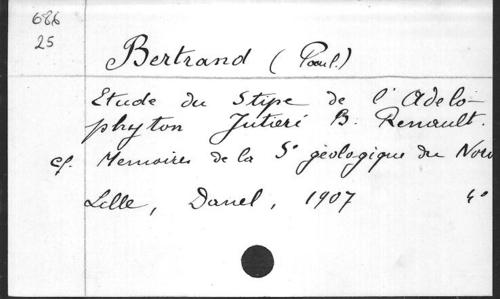 686
25
Bertrand (Paul.)
Etude du Stipe de l'Adelo-
phyton Jutieri B. Renault.
cf. Memoires de la Sᵉ géologique du Nord
Lille, Danel, 1907 4°